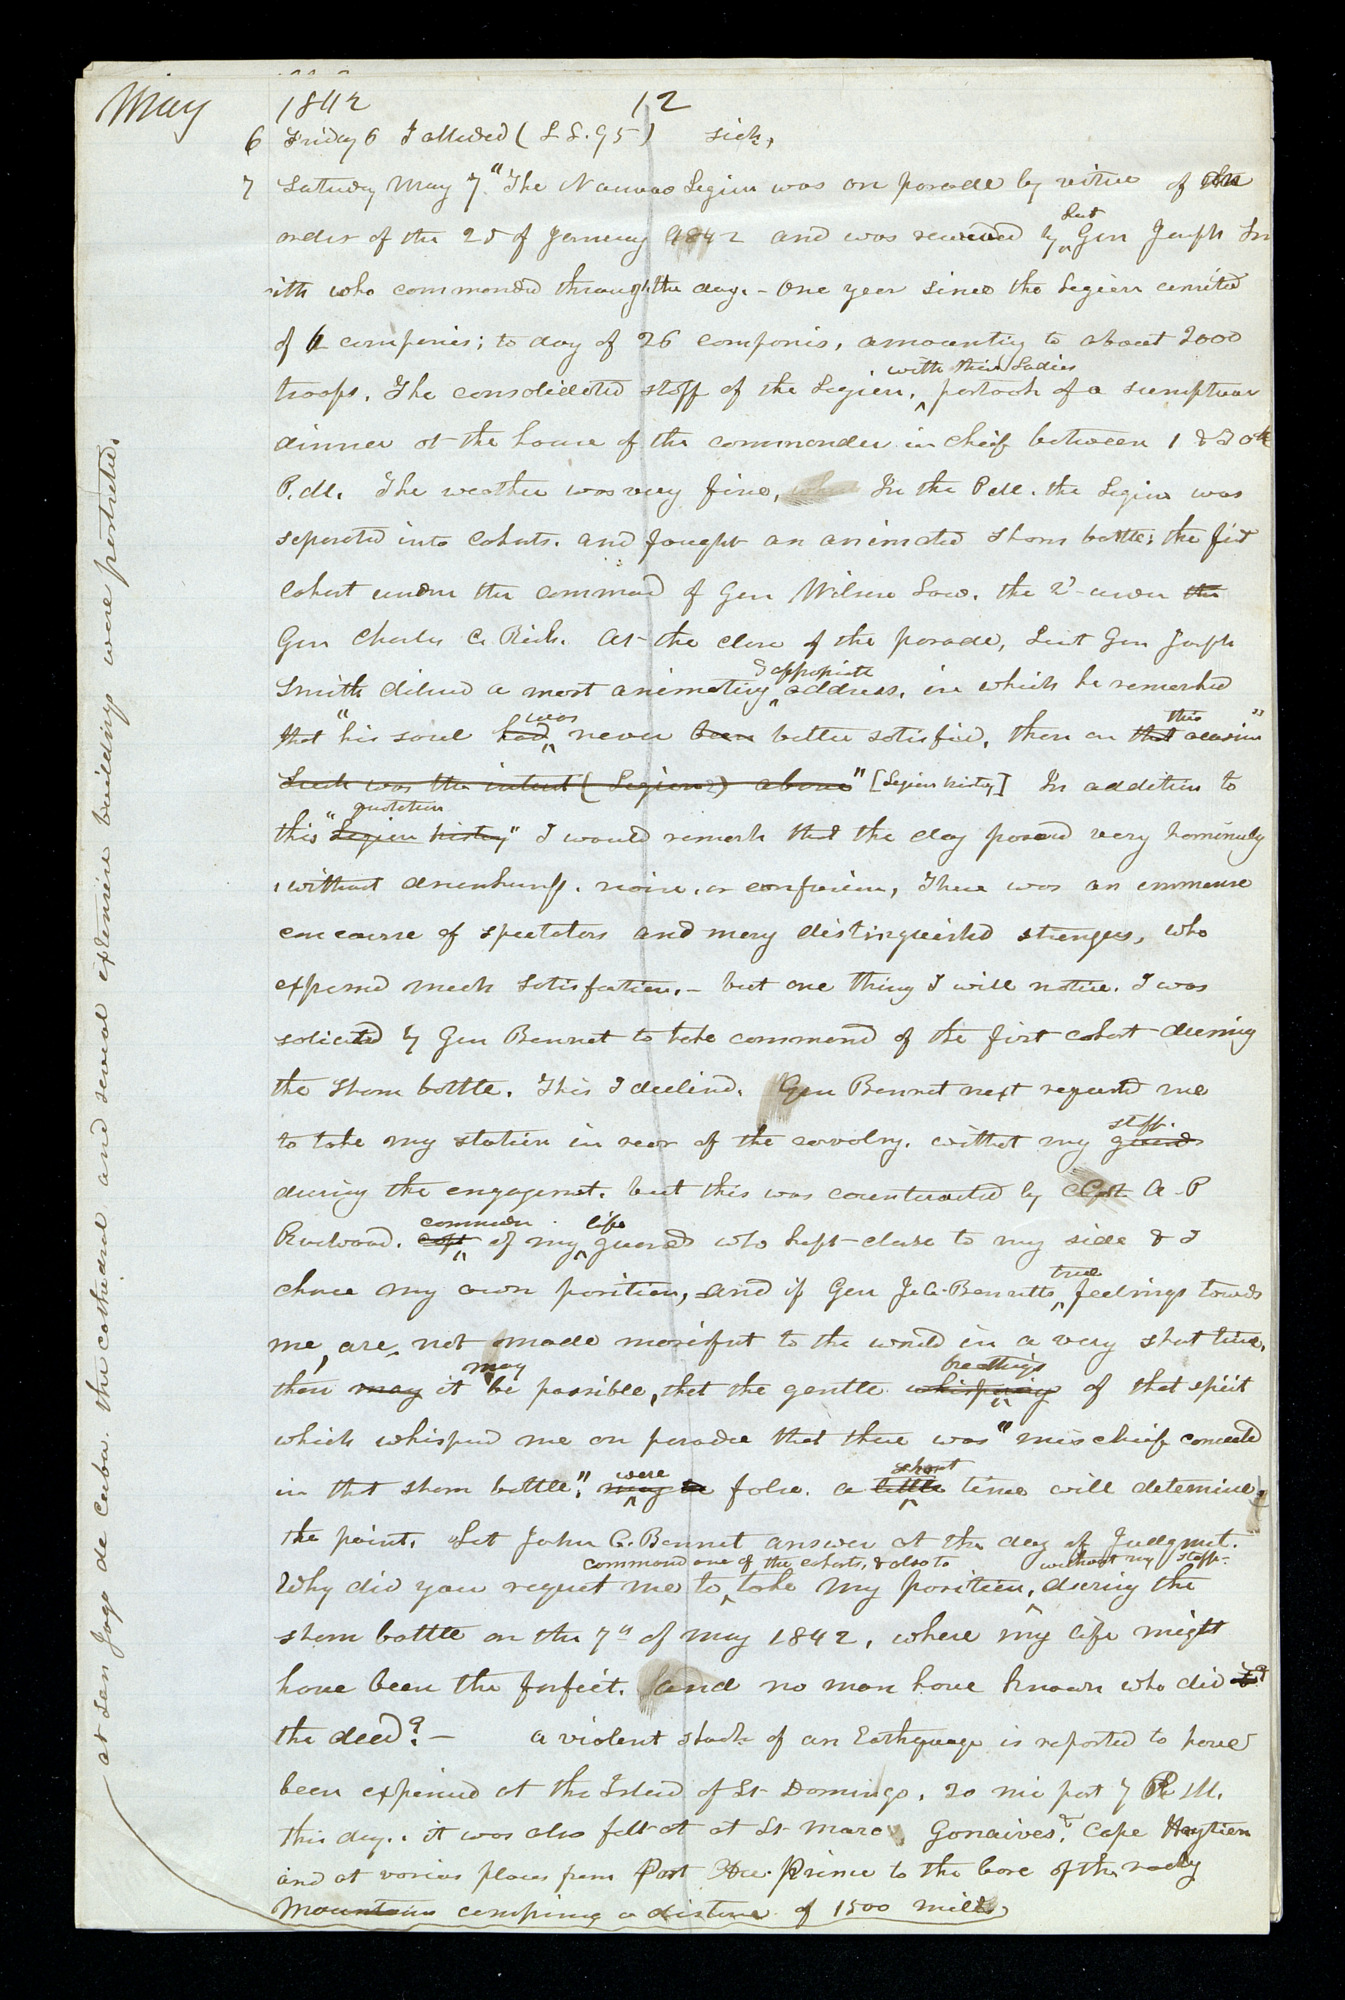 May 1842 12
6 Friday 6 I attended (L.L. 95) sick,
7 Saturday May 7. "The Nauvoo Legion was on parade by virtue of an
order of the 25 of January 1842 and was reviewed by Lut Gen Joseph Sm
ith who commanded through the day. – One year since the Legion consited
of 6 companies; to day of 26 companis, amounting to about 2000
troops. The consolidated staff of the Legion, with their Ladies partook of a sumptuous
dinner at the house of the commander in chief between 1 & 3 ock
P.M. The weather was very fine, In the P.M. the Legion was
seperated into Cohorts. and fought an animated sham battle; the first
Cohort under the command of Gen Wilson Law. the 2d under the
Gen Charles C. Rich. At the close of the parade, Leut Gen Joseph
Smith dilived a most animating & appopiate address, in which he remarked
that "his soul had was never been better satisfied, than on that this occasion"
Such was the intent (Legion) above" [Legion histry] In addition to
this "Legion histoy" quotation I would remark that the day passed very hominuly
, without drunkness, noise, or confusion, There was an immense
concourse of spectators and many distinguished strangers, who
expressed much satisfaction. – but one thing I will notice. I was
solicited by Gen Bennet to take command of the first cohort during
the sham battle. This I declined. Gen Bennet next requestd me
to take my station in rear of the cavalry. without my guards staff.
during the engagemet. but this was counteracted by Capt A. P
Rockwood. capt commander of my life guards who kept close to my side & I
chose my own position, and if Gen J. C. Bennetts true feelings towards
me, are not made manifest to the world in a very short time,
then may it may be possible, that the gentle whispering breathings of that spirit
which whispered me on parade that there was "mischief concealed
in that sham battle." may be were false. a little short time will determine
the point. Let John C. Bennet answer at the day of Judgmet.
Why did you request me to command one of the cohorts, & also to take my position, without my staff. during the
sham battle on the 7th of May 1842, where my life might
have been the forfeit. and no man have known who did it?
the deed? – a violent shock of an Earthquage is reported to have
been expeined at the Island of St Domingo, 20 min past 7 P. M.
this day., it was also felt at at St Marc, Gonaives, & Cape Haytien
and at various places from Port Au Prince to the base of the rocky
Mountains compising a distance of 1500 miles,
at San Jago de Cuba. the cathedral and several extensive buildings were postrated.